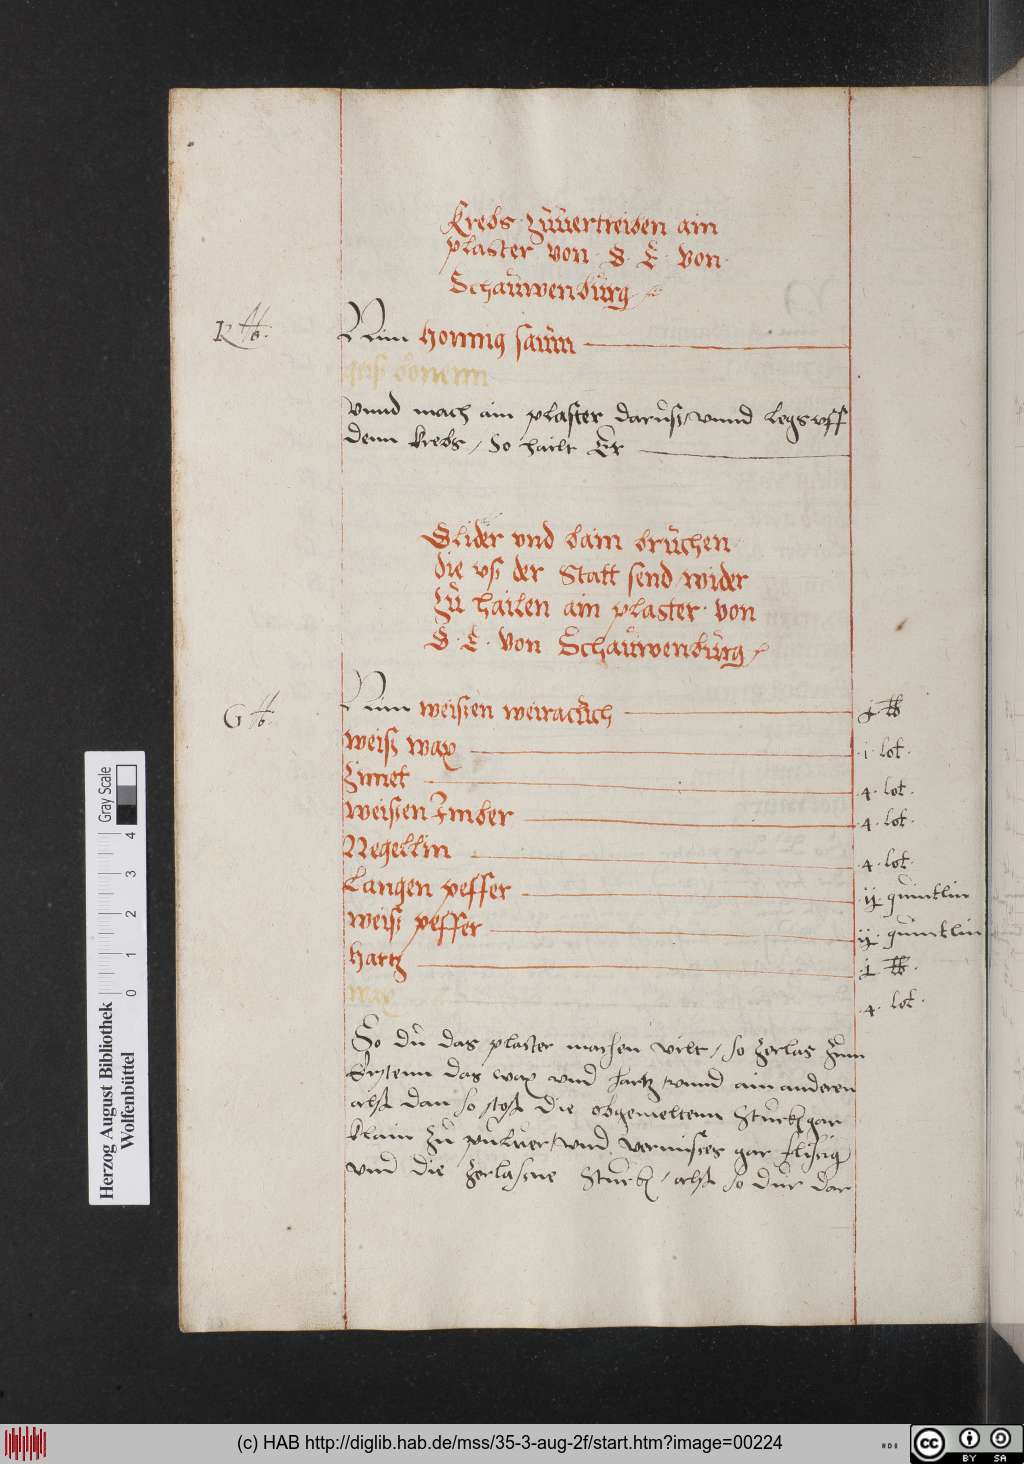 Krebs zůuertreiben ain
plaster von S. E. von
Schaŭwenbŭrg
R
Nim honnig saŭm
vnnd mach ain plaster darůß/ vnnd legs vff
denn krebs / So hailt Er
Glider vnd bain brüchen
die vß der Statt send wider
zů hailen ain plaster von
S. E. von Schaŭwenbŭrg
G
Nim weissen weirauch i ℔
weiß wax i lot
Zimet 4 lot
weissen Imber 4 lot
Negellin 4 lot
Langen peffer ij quintlin
weiß peffer ij quintlin
hartz i ℔
wax 4 lot
So dŭ das plaster machen wilt / so zerlas zum
Ersten das wax vnd hartz / vnnd ain anderen
alß dan so stoß die obgemelten Stuck gar
klain zŭ pŭluer / vnd vermisches gar flisig
vnd die zerlasne Stuck / alß so dŭ
Herzog August Bibliothek
Wolfenbüttel
0 1 2 3 4
Gray Scale
(c) HAB http://diglib.hab.de/mss/35-3-aug-2f/start.htm?image=00224
cc BY SA